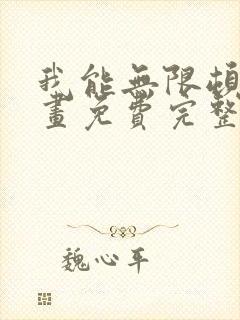 我能無限頓
畫免費完整
魏心平